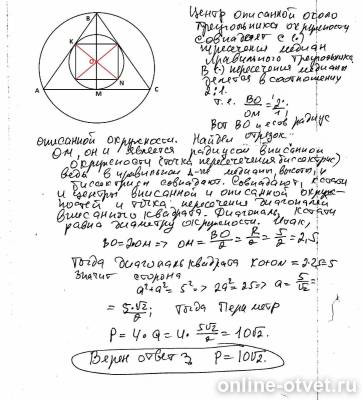 B
K
O
A
M
N
C
Центр описанной около
треугольника окружности
совпадает с (.)
пересечения медиан
правильного треугольника
В (.) пересечения медианы
делятся в соотношении
2:1.
т.е. BO/OM = 2/1
Вот BO и есть радиус
описанной окружности. Найдем отрезок
OM, он и является радиусом вписанной
окружности (точка пересечения биссектрис)
ведь в правильном Δ-ке медианы, высоты и
биссектрисы совпадают. Совпадают, кстати
и центры вписанной и описанной окруж-
ностей и точка пересечения диагоналей
вписанного квадрата. Диагональ, кстати
равна диаметру окружности. Итак,
BO=2OM => OM = BO/2 = R/2 = 5/2 = 2,5
Тогда диагональ квадрата 2·2,5=5
Значит сторона
a²+a²=5² => 2a²=25 => a = 5/√2 =
= 5·√2/2; Тогда Периметр
P = 4·a = 4·5√2/2 = 10√2.
Верен ответ 3 P=10√2.
online-otvet.ru